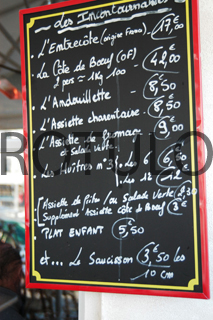 Les Incontournables
. L'Entrecôte (origine France) 17,00 €
. La Côte de Bœuf (OF)
2 pers ≈ 1kg 100 42,00 €
. L'Andouillette 8,50 €
. L'Assiette charentaise 8,50 €
. L'Assiette de fromage
Salade verte 9,00 €
. Les Huîtres n°3 Les 6
Les 12
Assiette de frites / ou Salade Verte
Supplément Assiette Côte de Bœuf 3€
PLAT ENFANT 5,50 €
et... Le Saucisson 3,50 € les
10 cm
ROTULO